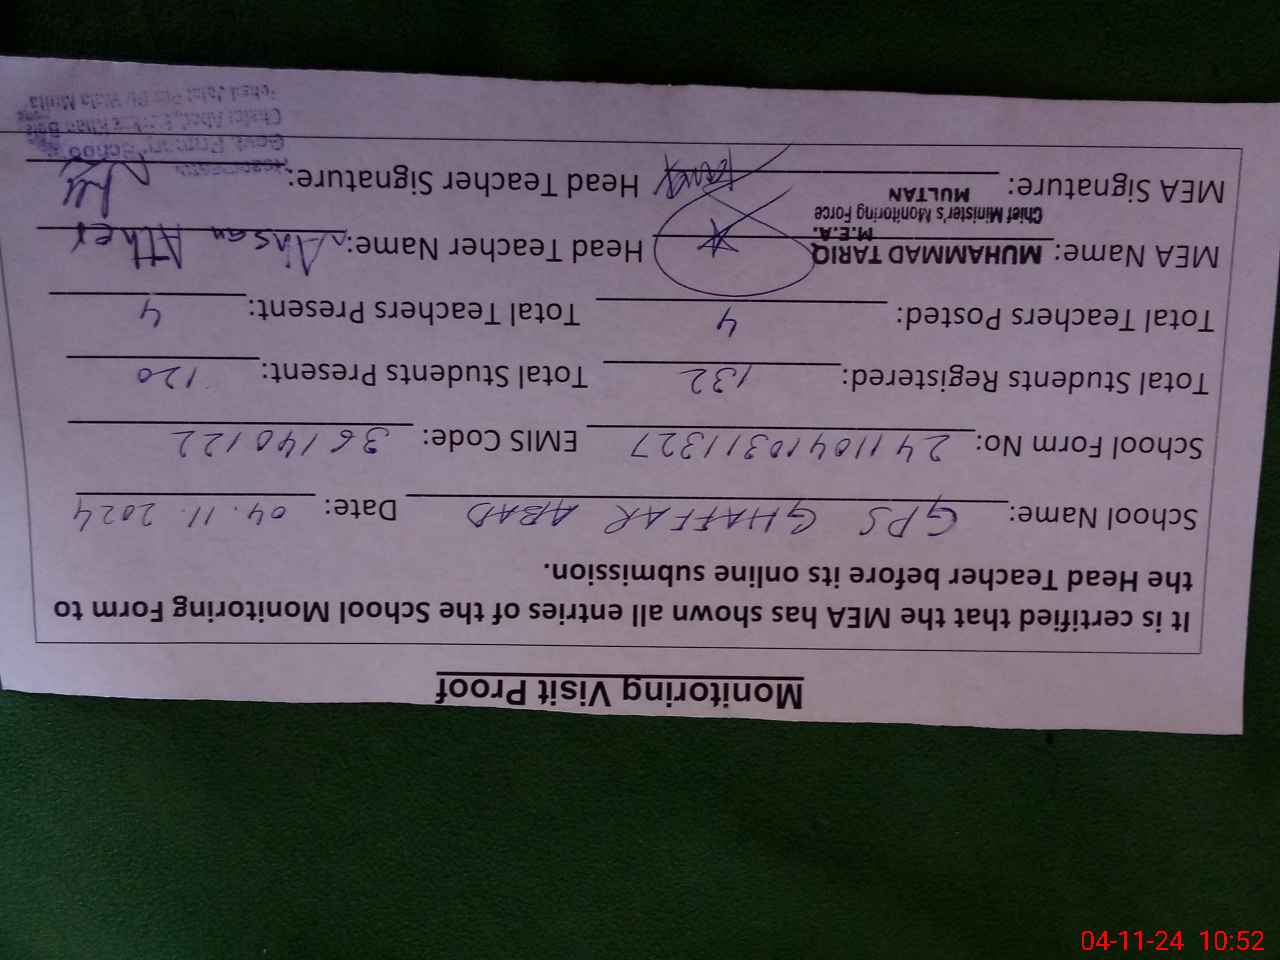 Monitoring Visit Proof
It is certified that the MEA has shown all entries of the School Monitoring Form to
the Head Teacher before its online submission.
School Name: GPS GHAFFAR ABAD Date: 04.11.2024
School Form No: 24110410311327 EMIS Code: 36140122
Total Students Registered: 132 Total Students Present: 120
Total Teachers Posted: 4 Total Teachers Present: 4
MEA Name: MUHAMMAD TARIQ Head Teacher Name: Ahsan Ather
M.E.A.
Chief Minister's Monitoring Force
MULTAN
MEA Signature: Head Teacher Signature:
Govt. Primary School
04-11-24 10:52